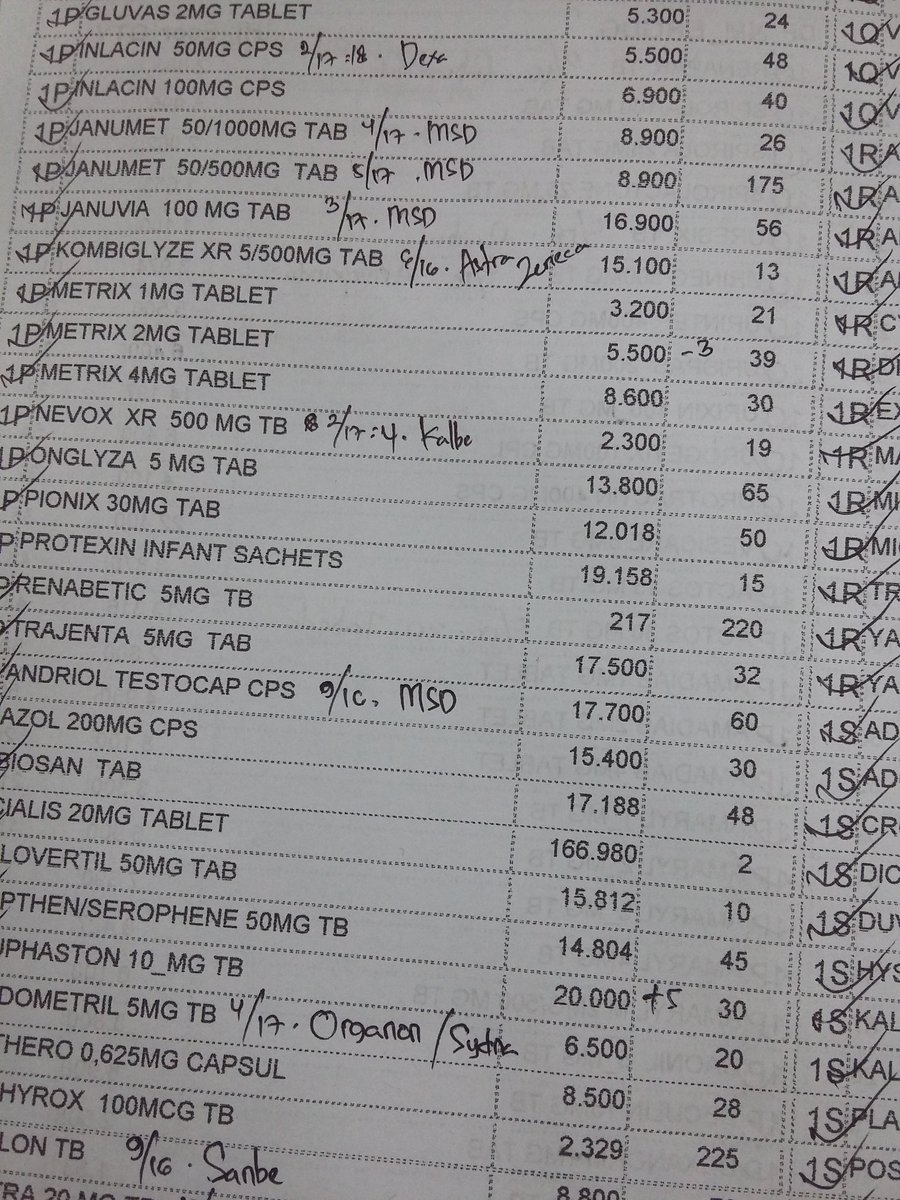 1P GLUVAS 2MG TABLET 5.300 24 1Q V
1P INLACIN 50MG CPS 2/17:18. Dexa 5.500 48 1Q V
1P INLACIN 100MG CPS 6.900 40 1Q V
1P JANUMET 50/1000MG TAB 4/17. MSD 8.900 26 1R A
1P JANUMET 50/500MG TAB 5/17 .MSD 8.900 175 1R A
1P JANUVIA 100 MG TAB 3/17. MSD 16.900 56 1R A
1P KOMBIGLYZE XR 5/500MG TAB /16. Astra Zeneca 15.100 13 1R A
1P METRIX 1MG TABLET 3.200 21 1R C
1P METRIX 2MG TABLET 5.500 -3 39 1R DI
1P METRIX 4MG TABLET 8.600 30 1R EX
1P NEVOX XR 500 MG TB 2/17:4. Kalbe 2.300 19 1R MA
1P ONGLYZA 5 MG TAB 13.800 65 1R MI
P PIONIX 30MG TAB 12.018 50 1R MI
P PROTEXIN INFANT SACHETS 19.158 15 1R TR
RENABETIC 5MG TB 217 220 1R YA
TRAJENTA 5MG TAB 17.500 32 1R YA
ANDRIOL TESTOCAP CPS 9/16. MSD 17.700 60 1S AD
AZOL 200MG CPS 15.400 30 1S AD
BIOSAN TAB 17.188 48 1S CR
CIALIS 20MG TABLET 166.980 2 1S DIC
LOVERTIL 50MG TAB 15.812 10 1S DU
PTHEN/SEROPHENE 50MG TB 14.804 45 1S HYS
UPHASTON 10_MG TB 20.000 +5 30 1S KAL
DOMETRIL 5MG TB 4/17. Organon / 6.500 20 1S KAL
THERO 0,625MG CAPSUL 8.500 28 1S PLA
HYROX 100MCG TB 2.329 225 1S POS
LON TB 9/16. Sanbe 8.800